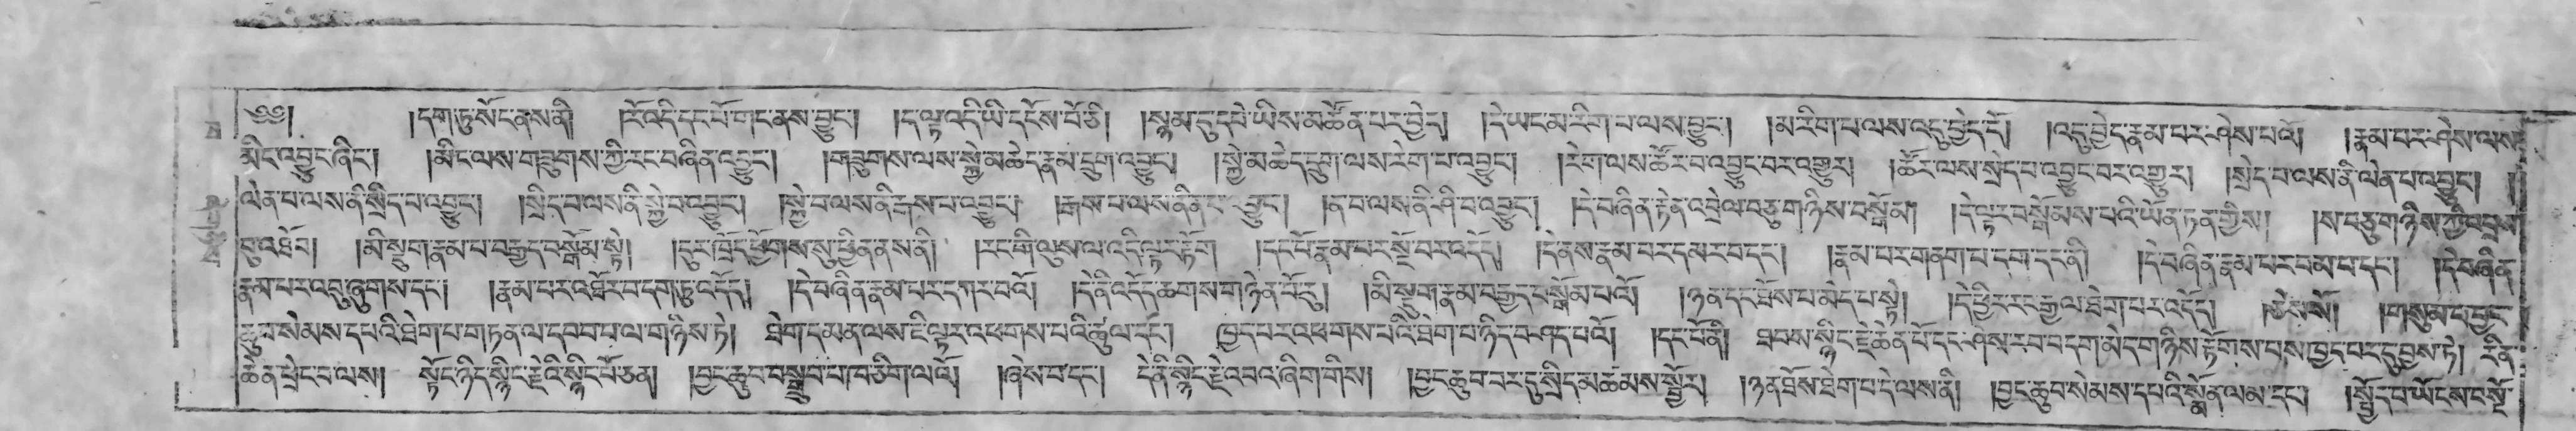 ༄༅། །དག་ཏུ་སོང་ནས་ནི། །རོ་འདི་དང་པོ་གང་ནས་བྱུང་། །ད་ལྟ་འདི་ཡི་དངོས་པོ་ཅི། །སྙམ་དུ་དཔེ་ཡིས་མཚོན་པར་བྱེད། །དེ་ཡང་མ་རིག་པ་ལས་བྱུང་། །མ་རིག་པ་ལས་འདུ་བྱེད་དོ། །འདུ་བྱེད་རྣམ་པར་ཤེས་པའོ། །རྣམ་པར་ཤེས་ལས་
མིང་འབྱུང་ཞིང་། །མིང་ལས་གཟུགས་ཀྱི་རང་བཞིན་འབྱུང་། །གཟུགས་ལས་སྐྱེ་མཆེད་རྣམ་དྲུག་འབྱུང་། །སྐྱེ་མཆེད་དྲུག་ལས་རེག་པ་འབྱུང་། །རེག་ལས་ཚོར་བ་འབྱུང་བར་འགྱུར། །ཚོར་ལས་སྲེད་པ་འབྱུང་བར་འགྱུར། །སྲེད་པ་ལས་ནི་ལེན་པ་འབྱུང་། །
ལེན་པ་ལས་ནི་སྲིད་པ་འབྱུང་། །སྲིད་པ་ལས་ནི་སྐྱེ་བ་འབྱུང་། །སྐྱེ་བ་ལས་ནི་རྒས་པ་འབྱུང་། །རྒས་པ་ལས་ནི་ན་བ་འབྱུང་། །ན་བ་ལས་ནི་ཤི་བ་འབྱུང་། །དེ་བཞིན་རྟེན་འབྲེལ་བཅུ་གཉིས་བསྒོམ། །དེ་ལྟར་བསྒོམས་པའི་ཡོན་ཏན་གྱིས། །ས་བཅུ་གཉིས་ཀྱི་འབྲས་
བུ་འཐོབ། །མི་སྡུག་རྣམ་པ་བརྒྱད་བསྒོམ་སྟེ། །དུར་ཁྲོད་ཕྱོགས་སུ་ཕྱིན་ནས་ནི། །རང་གི་ལུས་ལ་འདི་ལྟར་རྟོག །དང་པོ་རྣམ་པར་སྔོ་བར་འདོད། །དེ་ནས་རྣམ་པར་དམར་བ་དང་། །རྣམ་པར་གནག་པ་དག་དང་ནི། །དེ་བཞིན་རྣམ་པར་བམ་པ་དང་། །དེ་བཞིན་
རྣམ་པར་འབུ་ཞུགས་དང་། །རྣམ་པར་འཐོར་བ་དག་ཏུ་འདོད། །དེ་བཞིན་རྣམ་པར་དཀར་བའོ། །དེ་ནི་འདོད་ཆགས་གཉེན་པོར། །མི་སྡུག་རྣམ་བརྒྱད་བསྒོམ་པའོ། །ཉན་དང་ཐོས་པ་མེད་པ་སྟེ། །དེ་ཕྱིར་རང་རྒྱལ་ཐེག་པར་འདོད། ཅེས་སོ། །གསུམ་པ་བྱང་
ཆུབ་སེམས་དཔའི་ཐེག་པ་གཏན་ལ་དབབ་པ་ལ་གཉིས་ཏེ། ཐེག་དམན་ལས་ཇི་ལྟར་འཕགས་པའི་ཚུལ་དང་། ཁྱད་པར་འཕགས་པའི་ཐེག་པ་ཉིད་བཤད་པའོ། །དང་པོ་ནི། ཐབས་སྙིང་རྗེ་ཆེན་པོ་དང་ཤེས་རབ་བདག་མེད་གཉིས་རྟོགས་པས་ཁྱད་པར་དུ་བྱས་ཏེ། རིན་
ཆེན་ཕྲེང་བ་ལས། སྟོང་ཉིད་སྙིང་རྗེའི་སྙིང་པོ་ཅན། །བྱང་ཆུབ་བསྒྲུབ་པ་ཁ་ཅིག་ལའོ། །ཞེས་པ་དང་། དེ་ནི་སྙིང་རྗེ་འབའ་ཞིག་གིས། །བྱང་ཆུབ་བར་དུ་སྲིད་མཚམས་སྦྱོར། །ཉན་ཐོས་ཐེག་པ་དེ་ལས་ནི། །བྱང་ཆུབ་སེམས་དཔའི་སྨོན་ལམ་དང་། །སྤྱོད་པ་ཡོངས་བསྔོ་